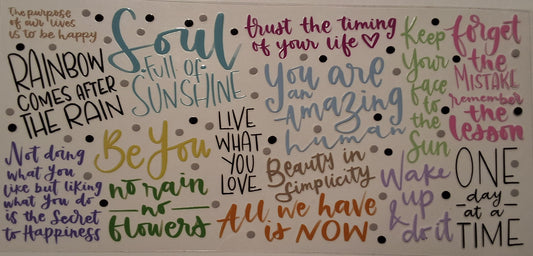 the purpose
of our lives
is to be happy
RAINBOW
COMES AFTER
THE RAIN
Soul
full of
SUNSHINE
trust the timing
of your life
Keep
Your
face
to the
Sun
forget
the
MISTAKE
remember
the
lesson
You are
an
Amazing
human
Not doing
what You
like but liking
what You do
is the Secret
to Happiness
Be You
no rain
no
flowers
LIVE
WHAT
YOU
LOVE
Beauty in
Simplicity
All we have
is NOW
Wake
up
& do it
ONE
day
at a
TIME